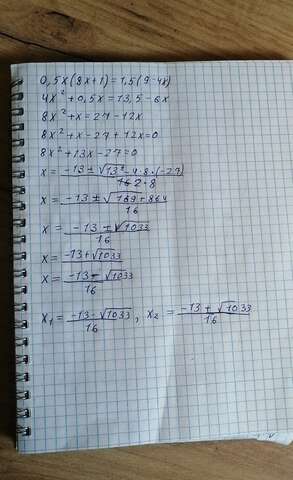 0,5x(8x+1)=1,5(9-4x)
4x²+0,5x=13,5-6x
8x²+x=27-12x
8x²+x-27+12x=0
8x²+13x-27=0
x=(-13±√(13²-4·8·(-27)))/(2·8)
x=(-13±√(169+864))/16
x=(-13±√1033)/16
x=(-13+√1033)/16
x=(-13-√1033)/16
x₁=(-13-√1033)/16, x₂=(-13+√1033)/16